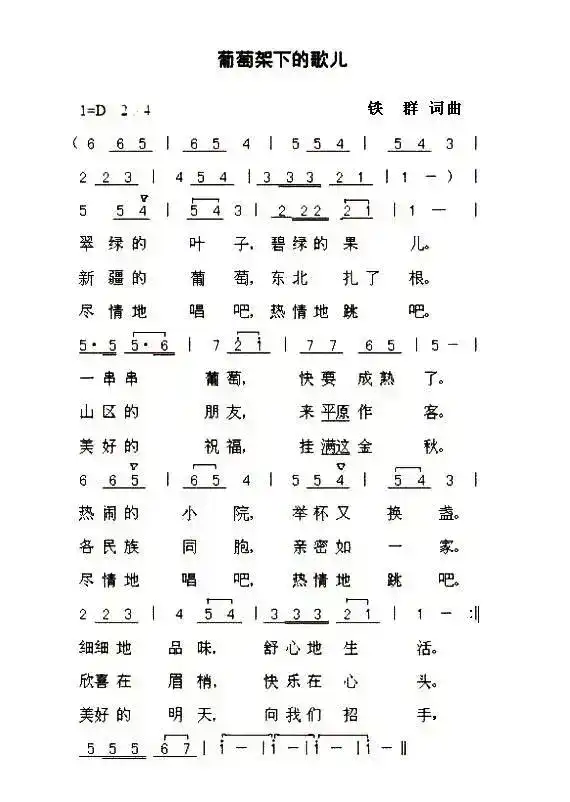 葡萄架下的歌儿
1=D 2/4 铁 群 词曲
(6 6 5 | 6 5 4 | 5 5 4 | 5 4 3 |
2 2 3 | 4 5 4 | 3 3 3 2 1 | 1 — ) |
5 5 4 | 5 4 3 | 2 2 2 2 1 | 1 — |
翠绿的 叶 子, 碧绿的 果 儿。
新疆的 葡 萄, 东北 扎了 根。
尽情地 唱 吧, 热情地 跳 吧。
5· 5 5· 6 | 7 2 1 | 7 7 6 5 | 5 — |
一串串 葡萄, 快要 成熟 了。
山区的 朋友, 来平原作 客。
美好的 祝福, 挂满这金 秋。
6 6 5 | 6 5 4 | 5 5 4 | 5 4 3 |
热闹的 小 院, 举杯又 换 盏。
各民族 同 胞, 亲密如 一 家。
尽情地 唱 吧, 热情地 跳 吧。
2 2 3 | 4 5 4 | 3 3 3 2 1 | 1 — :‖
细细地 品 味, 舒心地 生 活。
欣喜在 眉 梢, 快乐在 心 头。
美好的 明 天, 向我们 招 手,
5 5 5 6 7 | i — | i — | i — | i — ‖